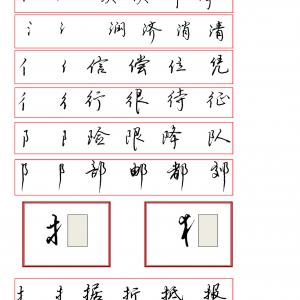 氵 氵 润 济 消 清
亻 亻 信 偿 位 凭
彳 彳 行 很 待 征
阝 阝 险 限 降 队
阝 阝 部 邮 都 郊
扌 犭
扌 扌 据 折 抵 报